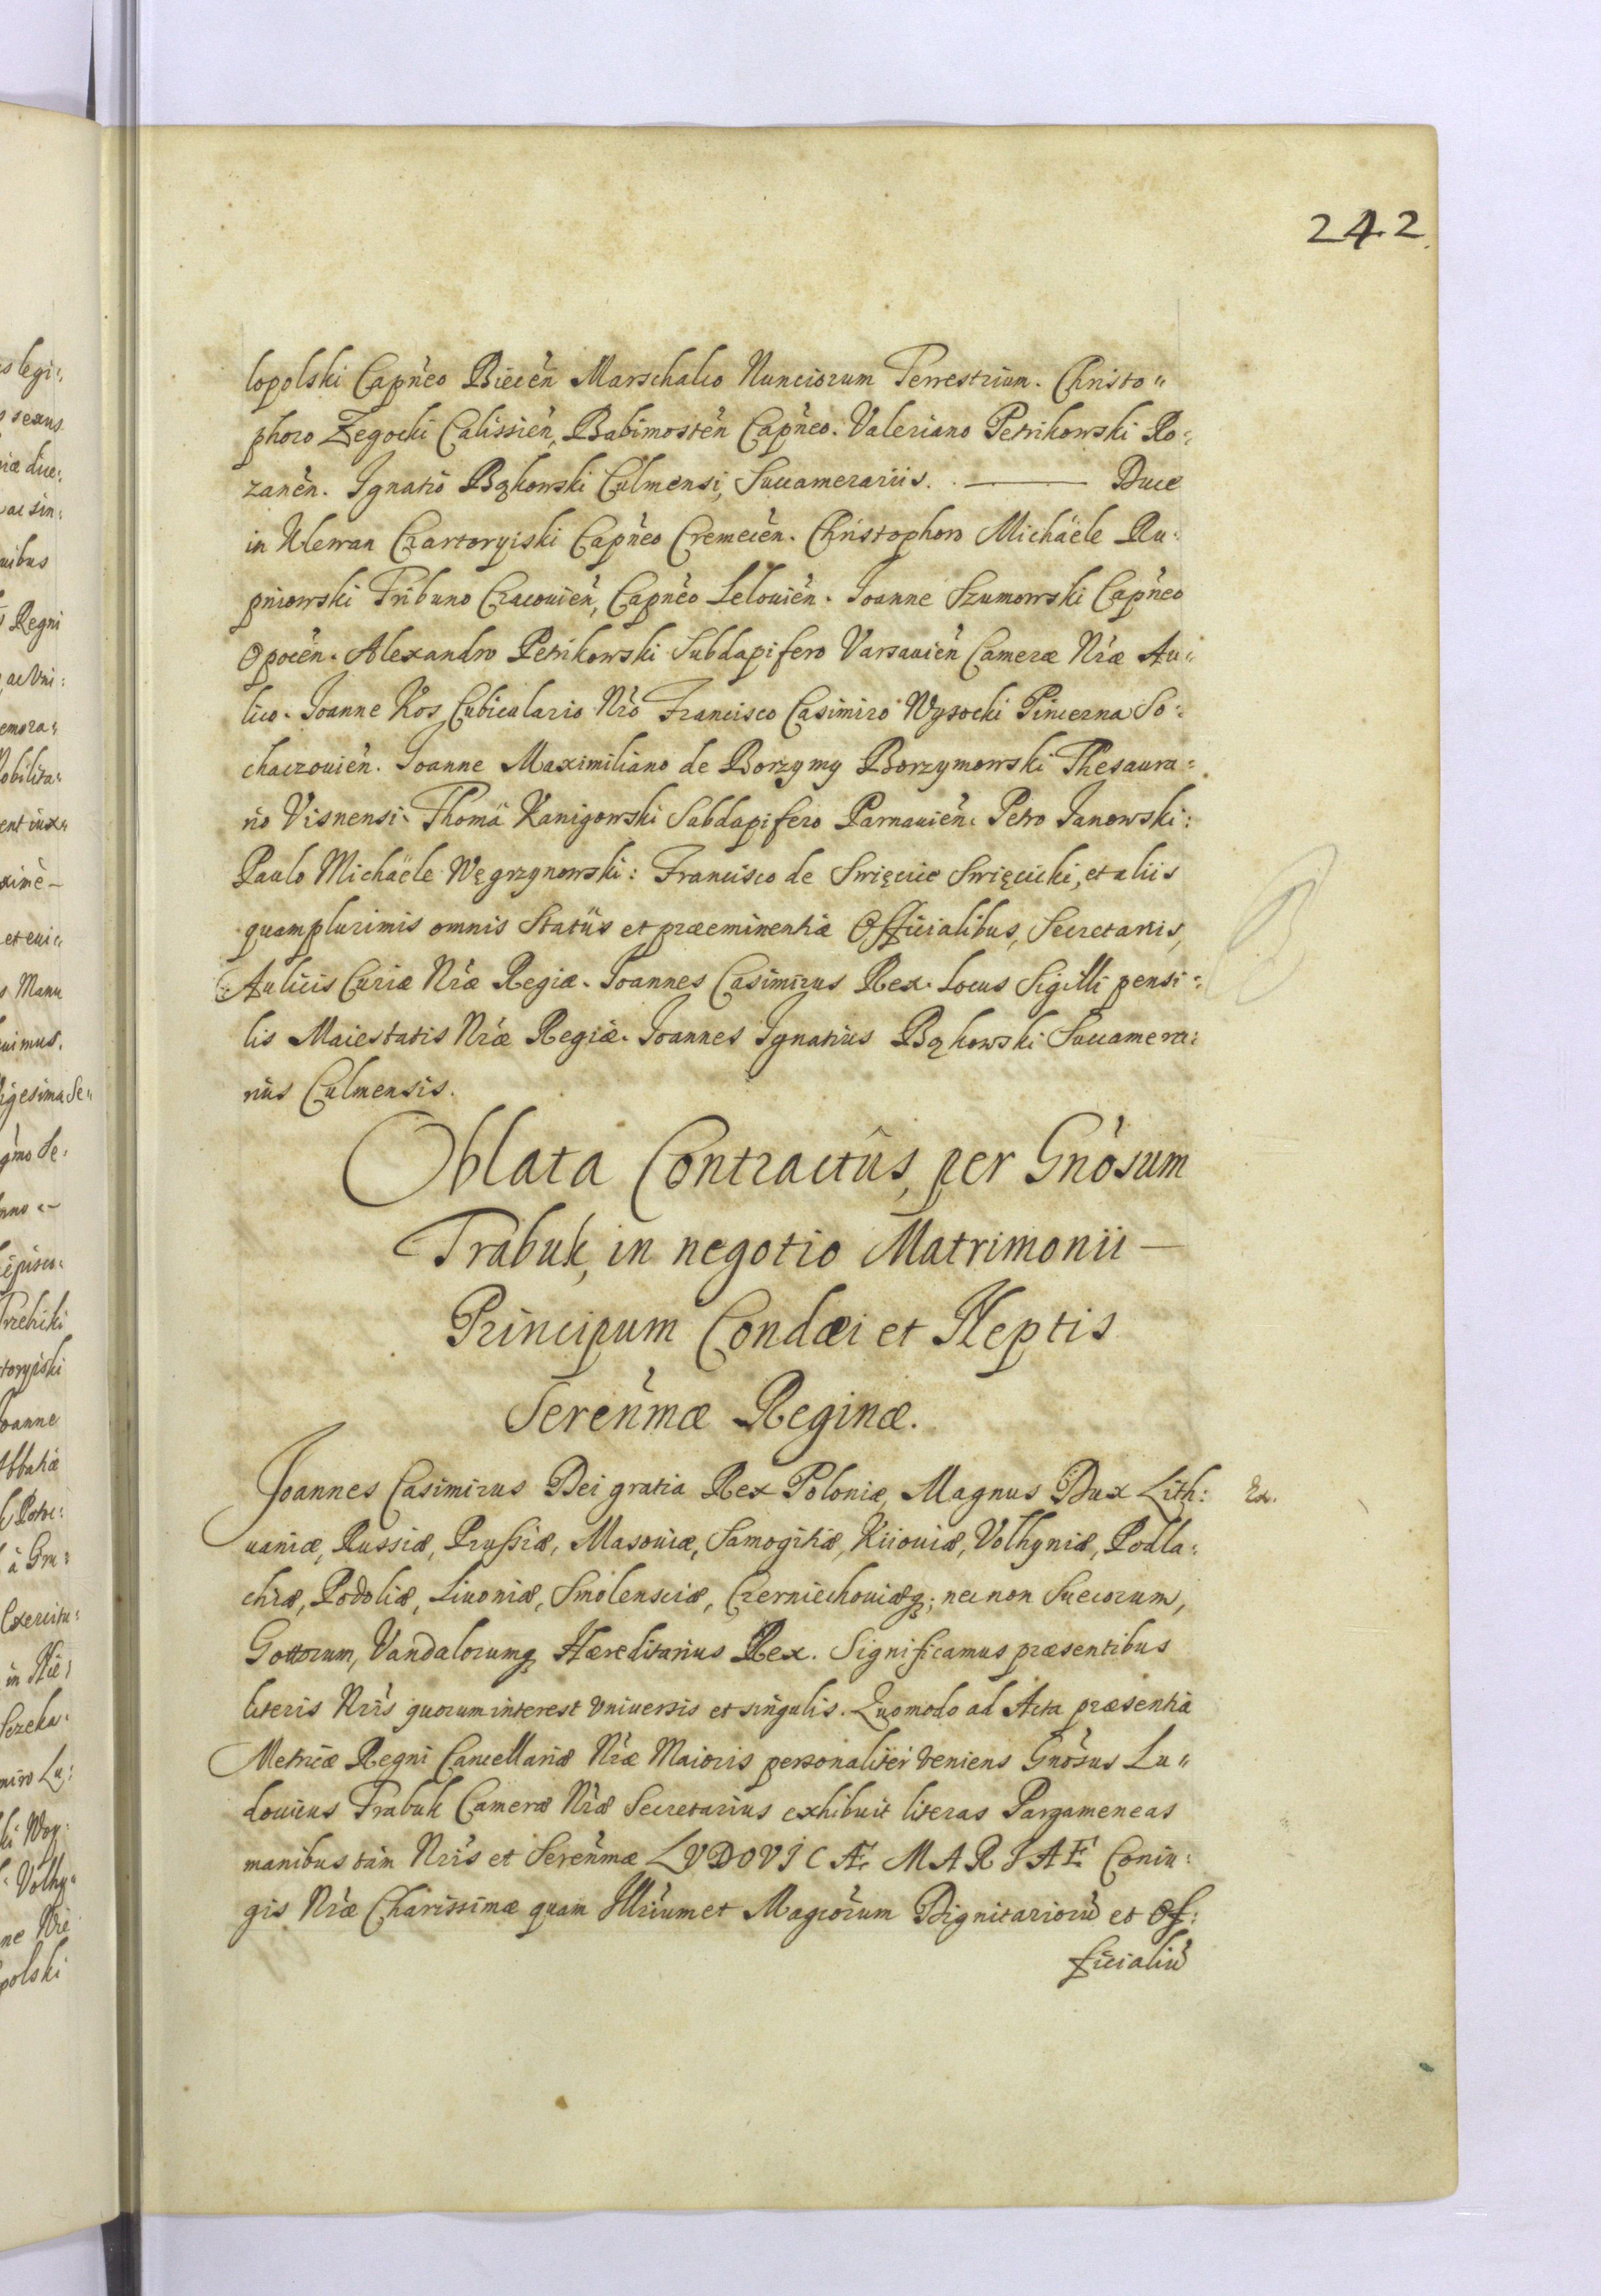 242
lopolski Capn̄eo Biecen̄ Marschalco Nunciorum Terrestrium. Christo„
phoro Zegocki Calissien̄, Babimosten̄ Capn̄eo. Valeriano Petrikowski Ro:
zanen̄. Ignatio Bąkowski Culmensi, Succamerariis. ——— Duce
in Klewan Czartoryiski Capn̄eo Cremecen̄. Christophoro Michäele Ru:
pniowski Tribuno Cracouien̄, Capn̄eo Lelouien̄. Joanne Szumowski Capn̄eo
Opocen̄. Alexandro Petrikowski Subdapifero Varsauien̄ Cameræ Nr̄æ Au:
lico. Joanne Kos Cubiculario Nr̄o Francisco Casimiro Wysocki Pincerna So:
chaczouien̄. Joanne Maximiliano de Borzymy Borzymowski Thesaura:
rio Visnensi. Thomä Kanigowski Subdapifero Parnauien̄. Petro Janowski:
Paulo Michäele Węgrzynowski: Francisco de Swięcice Swięcicki, et aliis
quamplurimis omnis Statüs et præeminentiæ Officialibus, Secretariis,
Aulicis Curiæ Nr̄æ Regiæ. Joannes Casimirus Rex. Locus Sigilli pensi:
lis Maiestatis Nr̄æ Regiæ. Joannes Ignatius Bąkowski Succamera:
rius Culmensis.
Oblata Contractûs, per Gn̄osum
Trabuk, in negotio Matrimonii —
Principum Condæi et Neptis
Seren̄mæ Reginæ.
Joannes Casimirus Dei gratia Rex Poloniæ, Magnus Dux Lith:
Ex.
uaniæ, Russiæ, Prussiæ, Masouiæ, Samogitiæ, Kiiouiæ, Volhyniæ, Podla:
chiæ, Podoliæ, Liuoniæ, Smolensciæ, Czerniechouiæq;; nec non Suecorum,
Gottorum, Vandalorumq; Hæreditarius Rex. Significamus præsentibus
literis Nr̄is quorum interest vniuersis et singulis. Quomodo ad Acta præsentia
Metricæ Regni Cancellariæ Nr̄æ Maioris personaliter veniens Gn̄osus Lu„
douicus Trabuk Cameræ Nr̄æ Secretarius exhibuit literas Pargameneas
manibus tam Nr̄is et Seren̄mæ LVDOVICÆ MARIAE Coniu:
gis Nr̄æ Charissimæ quam Illr̄ium et Magcōrum Dignitariorū et Of:
ficialiū